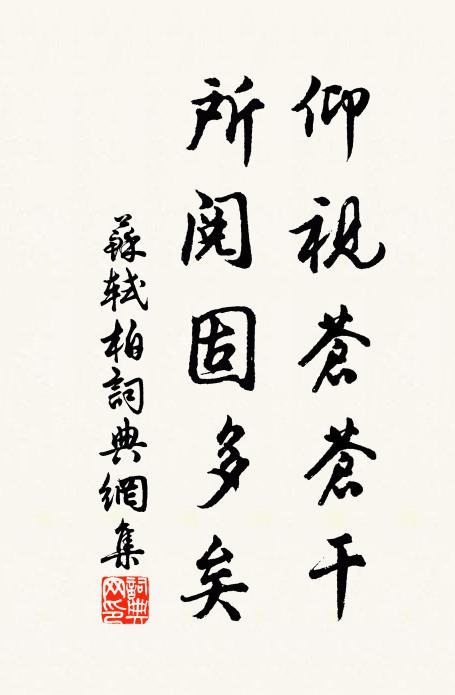 仰視蒼蒼干
所閱固多矣
蘇軾柏詞典網集
詞典网印